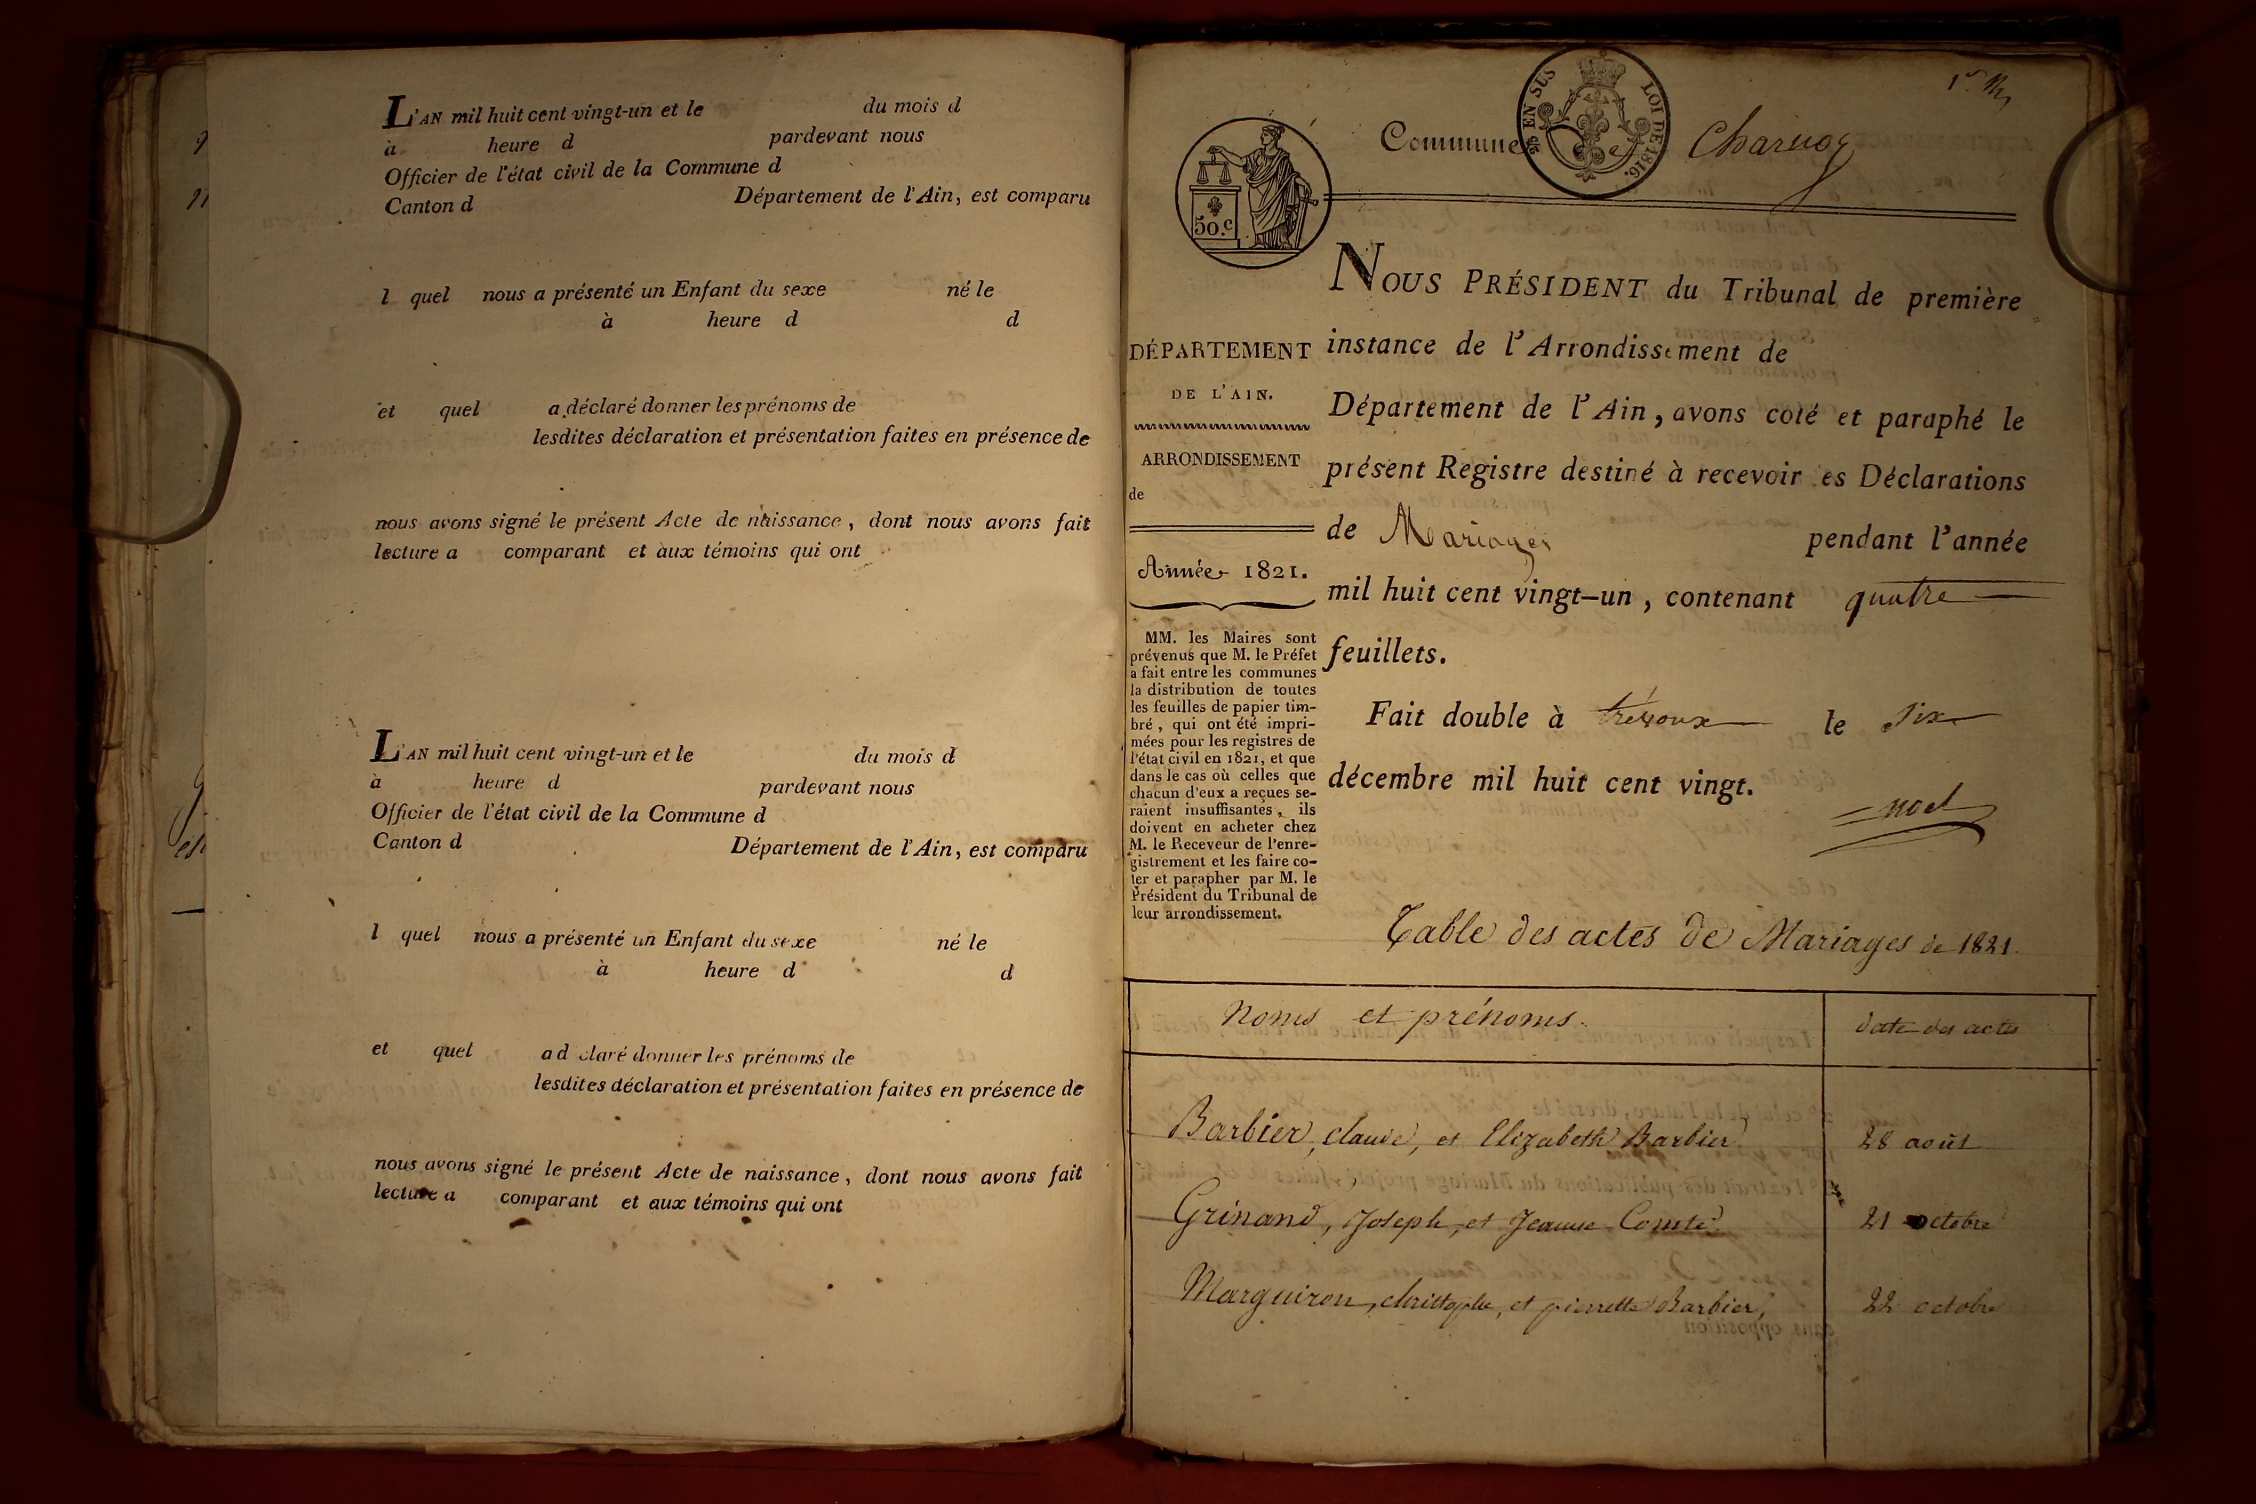 L'AN mil huit cent vingt-un et le du mois d
à heure d pardevant nous
Officier de l'état civil de la Commune d
Canton d Département de l'Ain, est comparu
l quel nous a présenté un Enfant du sexe né le
à heure d d
et quel a déclaré donner les prénoms de
lesdites déclaration et présentation faites en présence de
nous avons signé le présent Acte de naissance, dont nous avons fait
lecture a comparant et aux témoins qui ont
L'AN mil huit cent vingt-un et le du mois d
à heure d pardevant nous
Officier de l'état civil de la Commune d
Canton d Département de l'Ain, est comparu
l quel nous a présenté un Enfant du sexe né le
à heure d d
et quel a d claré donner les prénoms de
lesdites déclaration et présentation faites en présence de
nous avons signé le présent Acte de naissance, dont nous avons fait
lecture a comparant et aux témoins qui ont
EN SUS LOI DE 1816.
Commune Charnoz
50.c
NOUS PRÉSIDENT du Tribunal de première
instance de l'Arrondissement de
Département de l'Ain, avons coté et paraphé le
présent Registre destiné à recevoir es Déclarations
de Mariages pendant l'année
mil huit cent vingt-un, contenant quatre
feuillets.
Fait double à trévoux le Six
décembre mil huit cent vingt.
noel
DÉPARTEMENT
DE L'AIN.
ARRONDISSEMENT
de
Année 1821.
MM. les Maires sont
prévenus que M. le Préfet
a fait entre les communes
la distribution de toutes
les feuilles de papier tim-
bré, qui ont été impri-
mées pour les registres de
l'état civil en 1821, et que
dans le cas où celles que
chacun d'eux a reçues se-
raient insuffisantes, ils
doivent en acheter chez
M. le Receveur de l'enre-
gistrement et les faire co-
ter et parapher par M. le
Président du Tribunal de
leur arrondissement.
Table des actes de Mariages de 1821.
Noms et prénoms. date des actes
Barbier, claude, et Elizabeth Barbier 28 août
Grinand, Joseph, et Jeanne Comte 21 octobre
Marguiron, christophe, et pierrette Barbier, 22 octobre